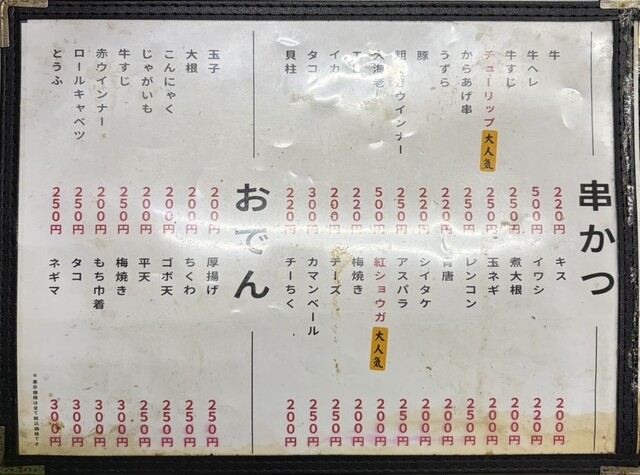 串かつ
牛 220円
牛ヘレ 500円
牛すじ 250円
チューリップ 大人気 250円
からあげ串 250円
うずら 220円
豚 220円
ウインナー 250円
大海老 500円
220円
イカ 200円
タコ 300円
貝柱 220円
キス 200円
イワシ 220円
煮大根 200円
玉ネギ 200円
レンコン 250円
唐 200円
シイタケ 200円
アスパラ 250円
紅ショウガ 大人気 200円
梅焼き 200円
チーズ 250円
カマンベール 250円
チーちく 200円
おでん
玉子 200円
大根 200円
こんにゃく 200円
じゃがいも 200円
牛すじ 250円
赤ウインナー 200円
ロールキャベツ 250円
とうふ 250円
厚揚げ 250円
ちくわ 250円
ゴボ天 250円
平天 250円
梅焼き 300円
もち巾着 300円
タコ 300円
ネギマ 300円
※表示価格は全て税込価格です